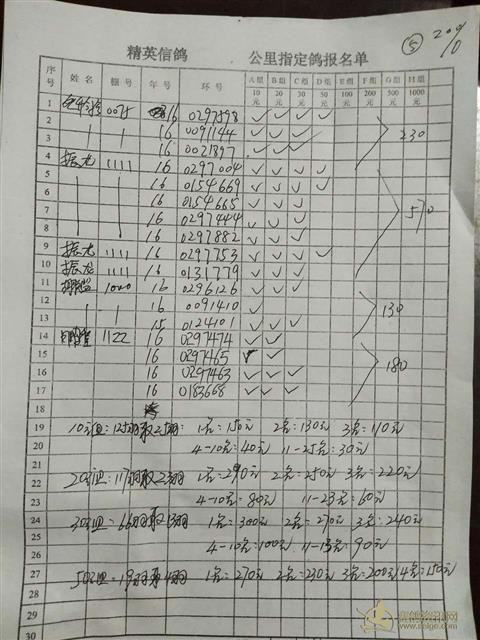 ⑤ 20%
精英信鸽 公里指定鸽报名单
序号 姓名 棚号 年号 环号 A组 B组 C组 D组 E组 F组 G组 H组
10元 20元 30元 50元 100元 200元 500元 1000元
1 16 0297598 ✓ ✓ ✓ ✓
2 16 0091144 ✓ ✓ ✓ 230
3 16 0021897 ✓ ✓ ✓
4 振龙 1111 16 0297004 ✓ ✓ ✓ ✓
5 16 0154669 ✓ ✓ ✓ ✓
6 16 0154665 ✓ ✓ ✓
7 16 0297444 ✓ ✓ ✓ 570
8 16 0297882 ✓ ✓ ✓
9 振龙 1111 16 0297753 ✓ ✓ ✓ ✓
10 振龙 1111 16 0131779 ✓ ✓ ✓
11 16 0296126 ✓ ✓ ✓
12 16 0091410 ✓ 130
13 15 0124101 ✓ ✓ ✓
14 1122 16 0297474 ✓ ✓
15 16 0297465 ✓ ✓ 180
16 16 0297463 ✓ ✓ ✓
17 16 0183668 ✓ ✓ ✓
18
19 10元组:125羽取25羽 1名:150元 2名:130元 3名:110元
20 4-10名:40元 11-25名:30元
21
22 20元组:117羽取23羽 1名:290元 2名:250元 3名:220元
23 4-10名:80元 11-23名:60元
24 30元组:66羽取13羽 1名:300元 2名:270元 3名:240元
25 4-10名:100元 11-13名:90元
26
27 50元组:19羽取4羽 1名:270元 2名:230元 3名:200元 4名:150元
28
29
30